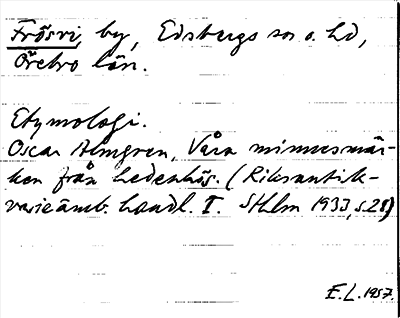 Frösvi, by, Edsbergs sn o. hd,
Örebro län.
Etymologi.
Oscar Almgren, Våra minnesmär-
ken från hedenhös. (Riksantik-
varieämb. handl. I. Sthlm 1933, s. 28)
E. L. 1957.